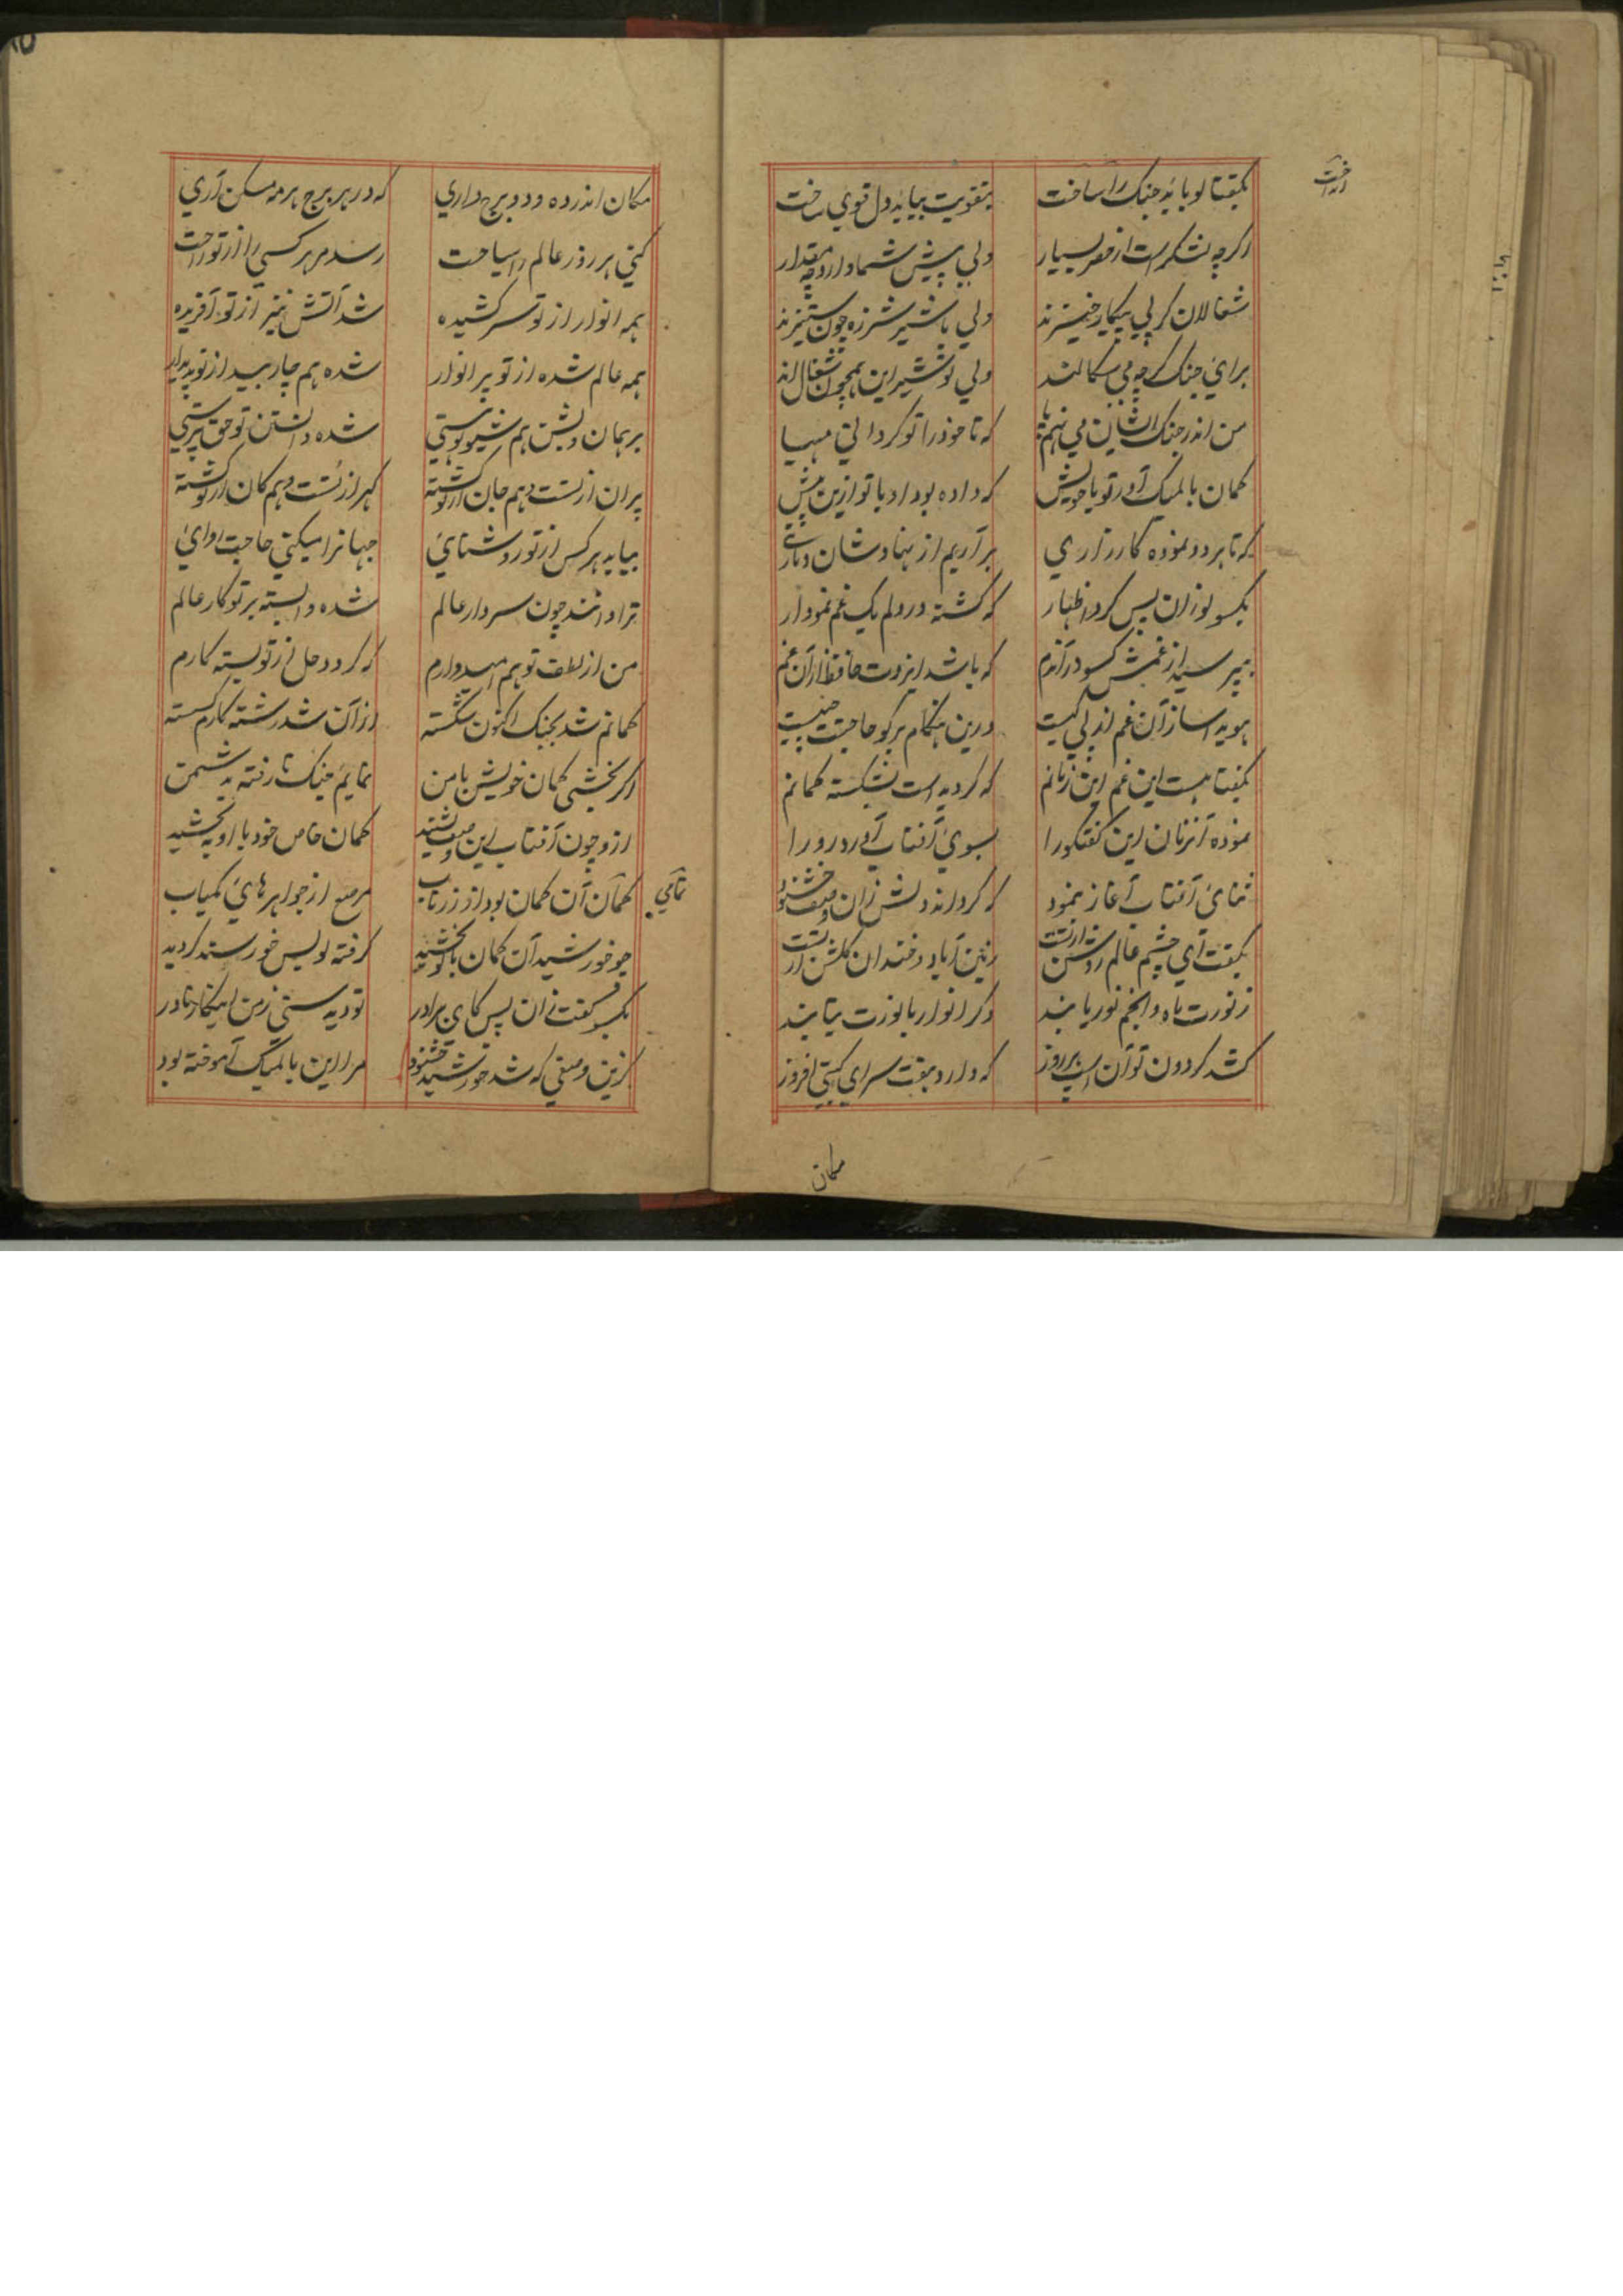 بگفتا لو بباید جنگ را ساخت
بتقویت بباید دل قوی ساخت
اگرچه لشکر است از حصر بسیار
ولی پیش شما دارد چه مقدار
شغالان گر پی پیکار خیزند
ولی با شیر شرزه چون ستیزند
برای جنگ گرچه می سگالند
ولی تو شیر این همچون شغال اند
من اندر جنگ ایشان می نهم پا
که تا خود را تو گردانی مهیا
کمان بالمیک آور تو با خویش
که داده بود او با تو ازین پیش
که تا هر دو نموده کارزاری
بر آریم از نهاد شان دماری
بکسو لو زان پس کرد اظهار
که گشته در دلم یک غم نمودار
بپرسید از غمش کسو در آندم
که باشد ایزدت حافظ ازان غم
هویدا ساز آن غم از پی کیست
درین هنگام برگو حاجتت چیست
بگفتا هست این غم این زمانم
که گردیده است بشکسته کمانم
نموده آنزمان این گفتگو را
بسوی آفتاب آورد رو را
ثنای آفتاب آغاز بنمود
که گرداند دلش زان وصف خشنود
بگفت ای چشم عالم روشن از تست
زمین آباد و خندان گلشن از تست
ز نورت ماه و انجم نور یابند
دگر انوار با نورت بتابند
کشد گردون تو آن اسپ هر روز
که دارد هفت سر ای گیتی افروز
مکان
مکان اندر ده و دو برج داری
که در هر برج هر مه مسکن آری
کنی هر روز عالم را سیاحت
رسد مر هر کسی را از تو راحت
همه انوار از تو سر کشیده
شد آتش نیز از تو آفریده
همه عالم شده از تو پر انوار
شده هم چار بید از تو پدیدار
برهمان و بشن هم شیو توستی
شده دانستن تو حق پرستی
پران از تست و هم جان از تو گشته
گهر از تست و هم کان از تو گشته
بیابد هر کس از تو روشنائی
جهانرا میکنی حاجت روائی
ترا دانند چون سردار عالم
شده وابسته بر تو کار عالم
من از لطف تو هم امیدوارم
که گردد حل ز تو بسته کارم
کمانم شد بجنگ اکنون شکسته
ازان شد رشته کارم گسسته
اگر بخشی کمان خویش با من
نمایم جنگ تا رفته به دشمن
ازو چون آفتاب این وصف بشنید
کمان خاص خود با او ببخشید
تمامی
کمان آن کمان بود از زر ناب
مرصع از جواهرهای کمیاب
چو خورشید آن کمان با لو بخشید
گرفته لو بس خورسند گردید
بکسو گفت زان پس کای برادر
تو دیدستی ز من اینکار نادر
کزین وصفی که شد خورشید خشنود
مرا این بالمیک آموخته بود